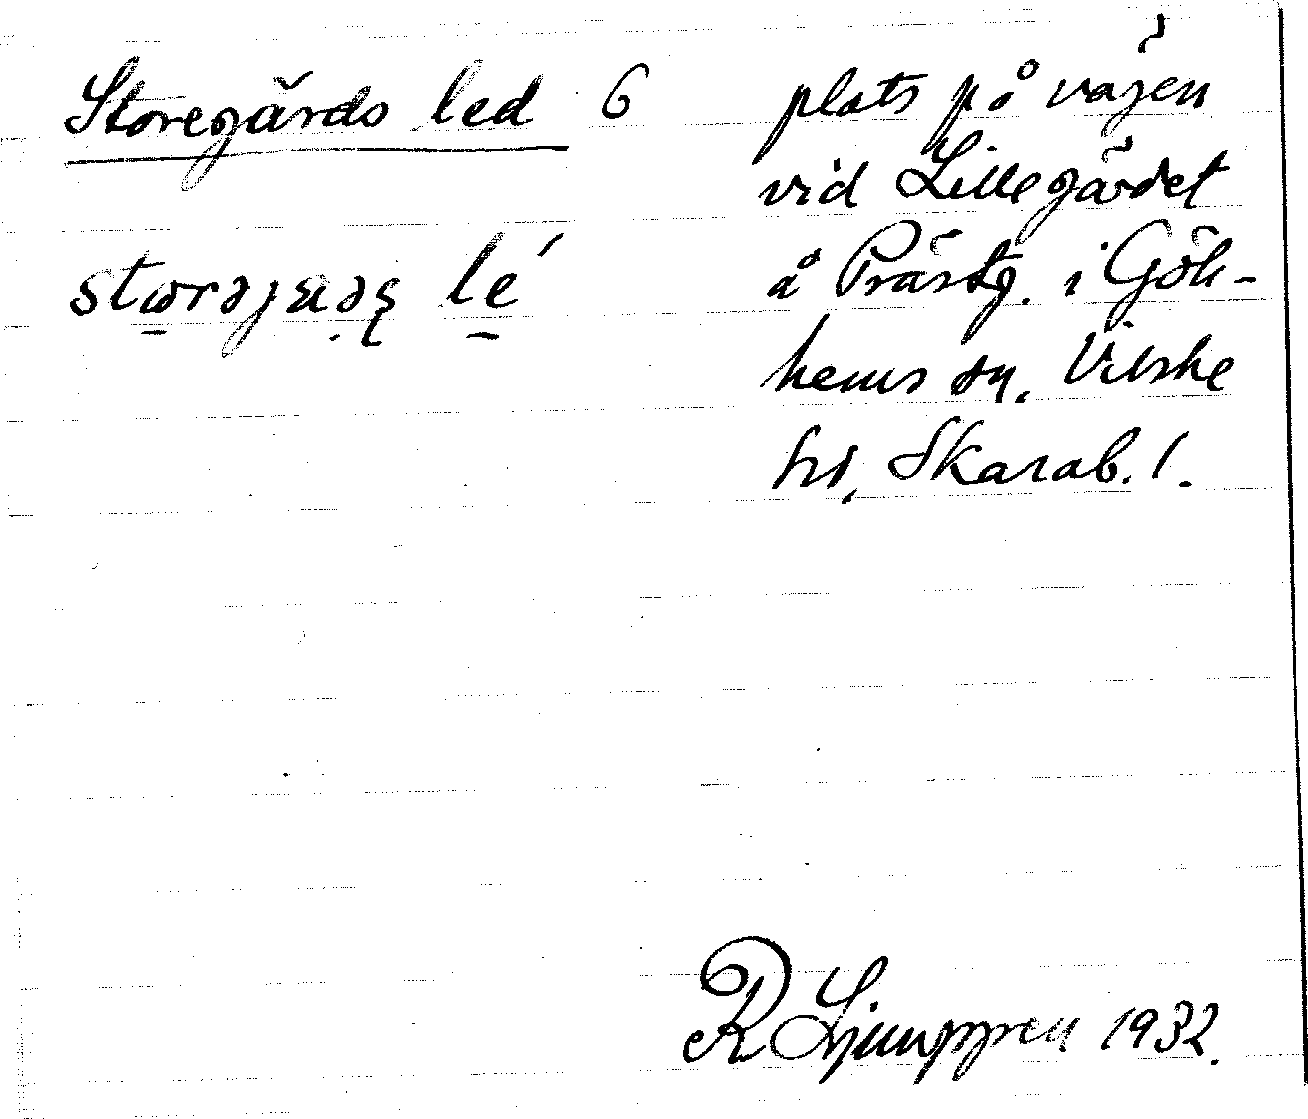 Storegärds led 6
plats på vägen
vid Lillegärdet
å Prästg. i Gök-
hems sn. Vilske
hd, Skarab. l.
R Ljunggren 1932.